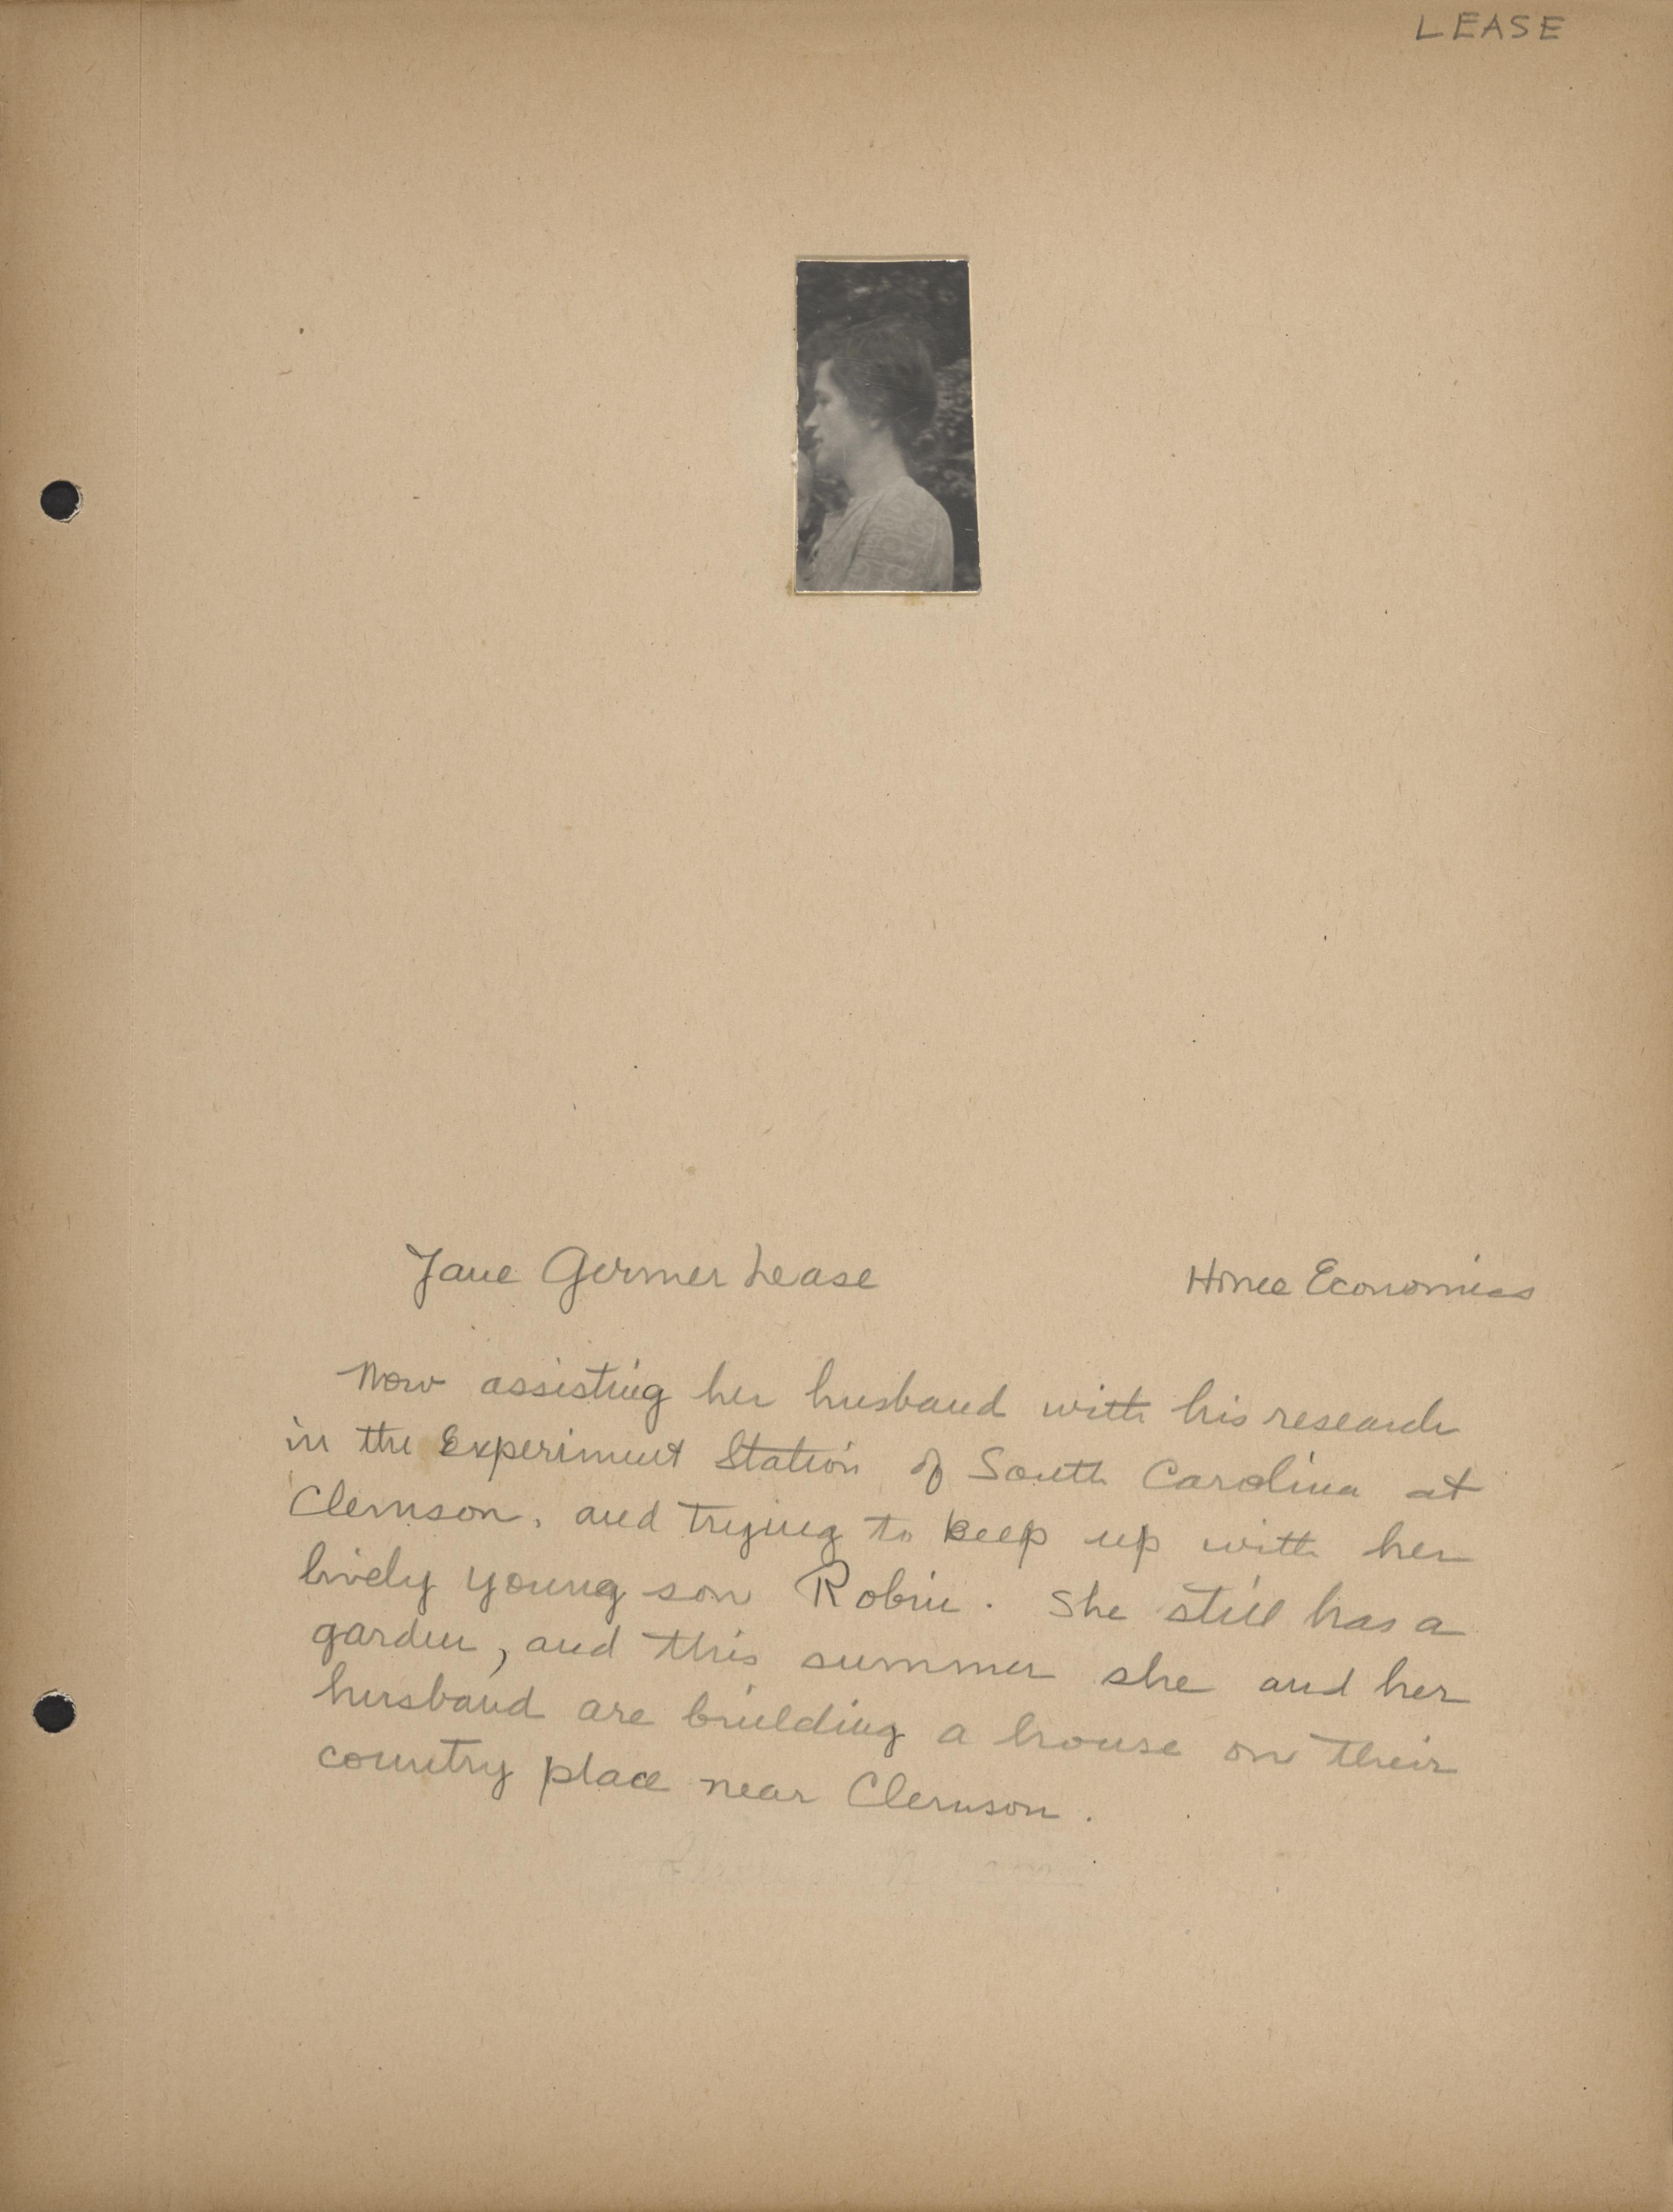 LEASE
Jane Germer Lease
Home Economics
Now assisting her husband with his research
in the Experiment Station of South Carolina at
Clemson, and trying to keep up with her
lively young son Robin. She still has a
garden, and this summer she and her
husband are building a house on their
country place near Clemson.